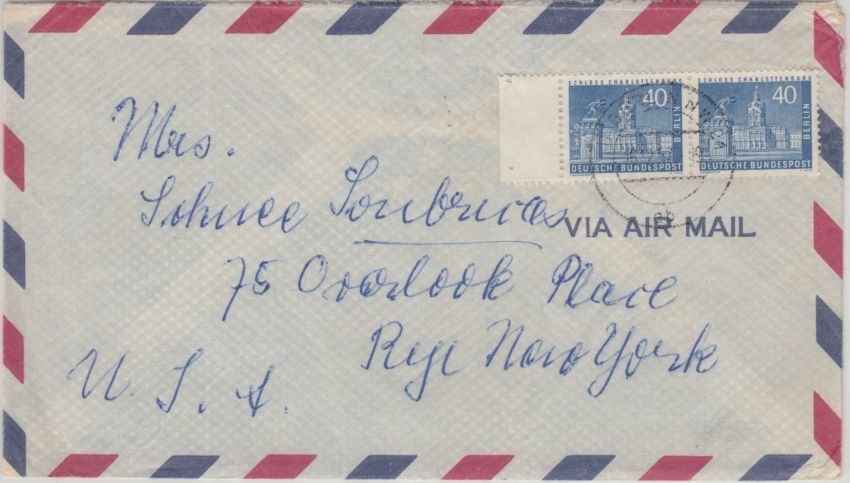 SCHLOSS CHARLOTTENBURG
40
BERLIN
DEUTSCHE BUNDESPOST
SCHLOSS CHARLOTTENBURG
40
BERLIN
DEUTSCHE BUNDESPOST
VIA AIR MAIL
Mrs.
75 Overlook Place
Rye New York
U. S. A.